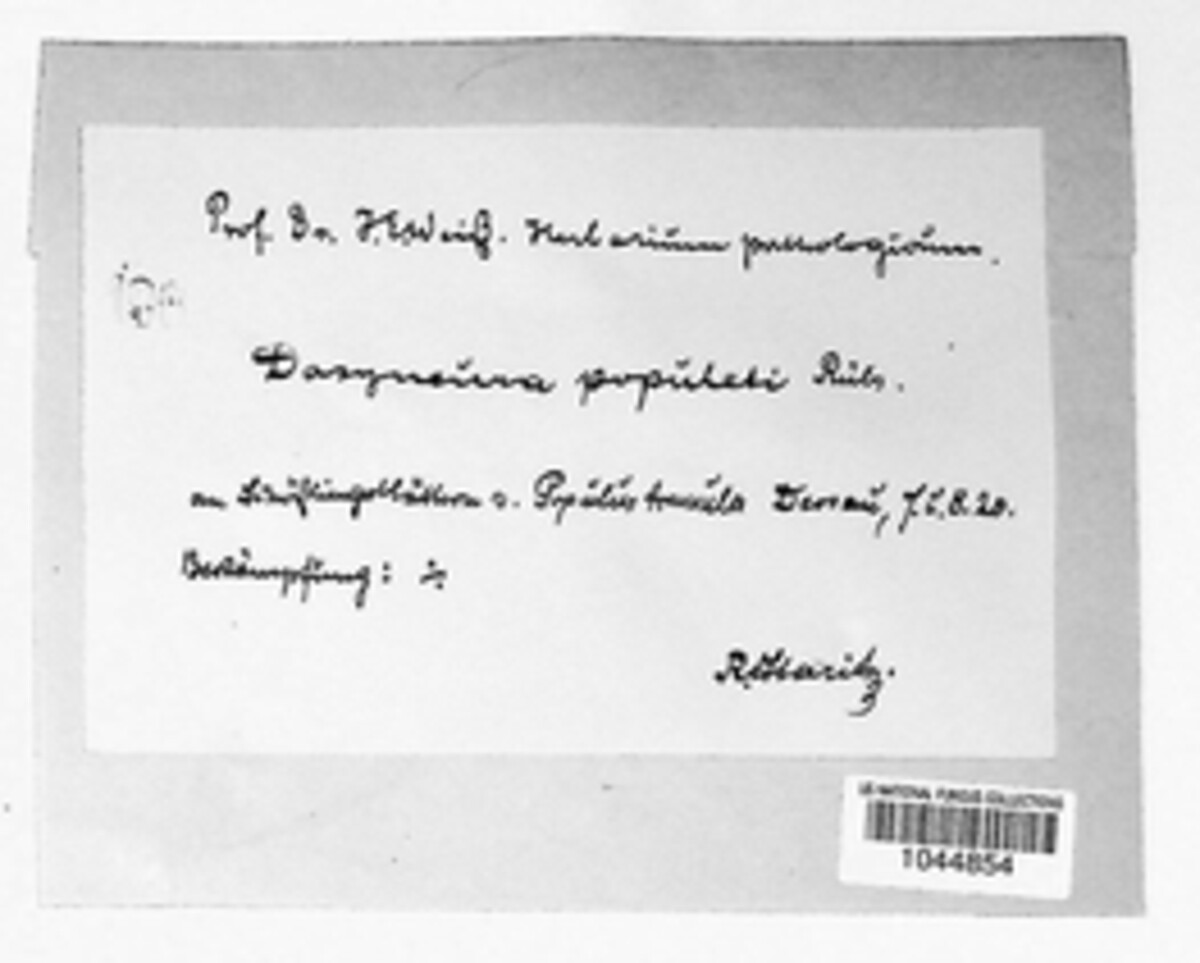 Prof. Dr. J. E. Weiß. Herbarium pathologicum.
Dasyneura populeti Rübs.
an v. Populus tremula Dessau, 8. 20.
Bekämpfung: ÷
R. Staritz.
US NATIONAL FUNGUS COLLECTIONS
1044854